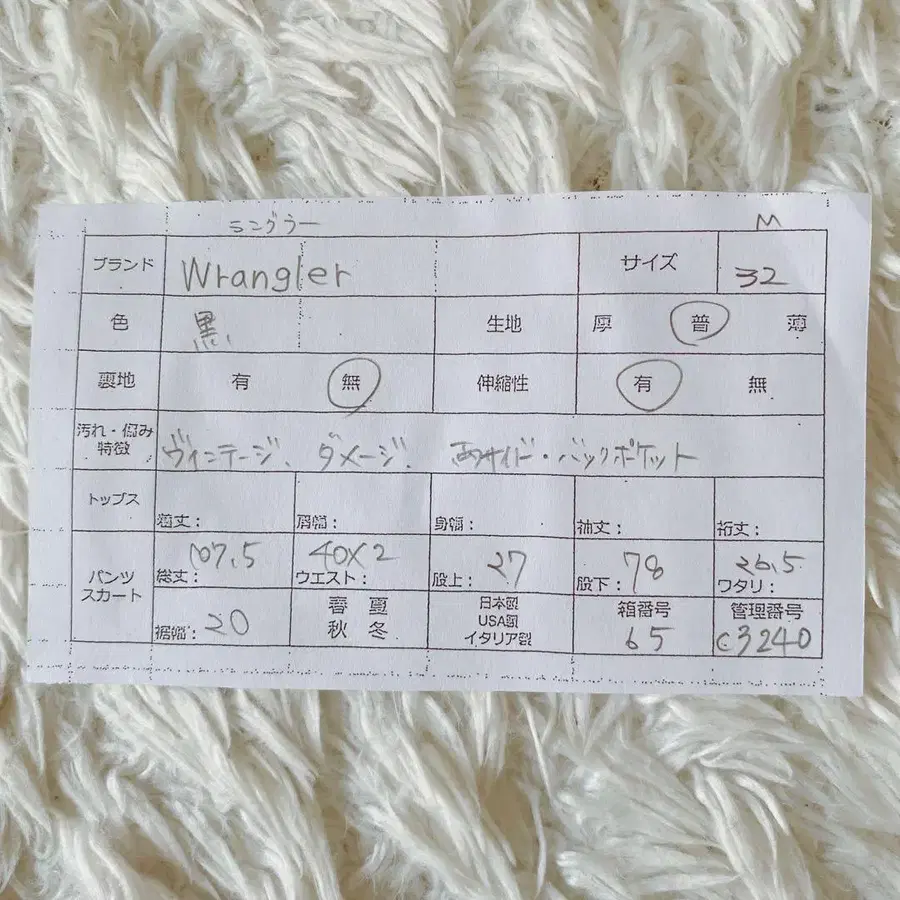 ラングラー M
ブランド Wrangler サイズ 32
色 黒 生地 厚 普 薄
裏地 有 無 伸縮性 有 無
汚れ・傷み
特徴 ヴィンテージ、ダメージ、両サイド・バックポケット
トップス 着丈: 肩幅: 身幅: 袖丈: 裄丈:
パンツ
スカート
総丈: 107.5 ウエスト: 40×2 股上: 27 股下: 78 ワタリ: 26.5
裾幅: 20
春 夏
秋 冬
日本製
USA製
イタリア製
箱番号
65
管理番号
C3240